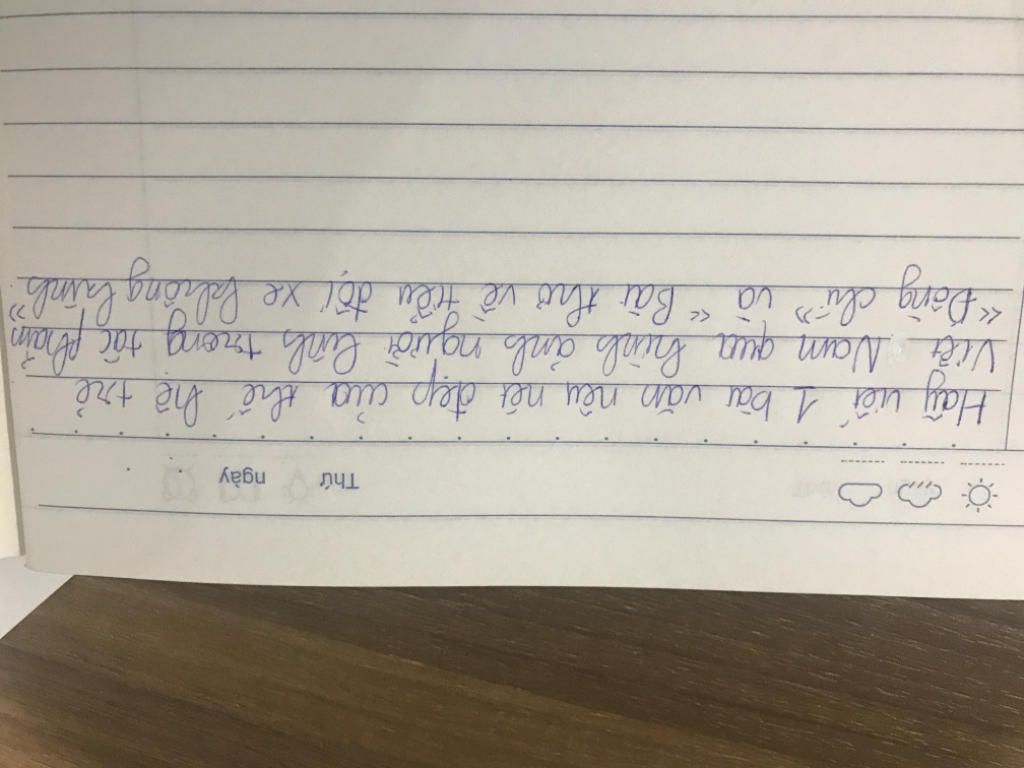 Thứ ngày
Hãy viết 1 bài văn nêu nét đẹp của thế hệ trẻ
Việt Nam qua hình ảnh người lính trong tác phẩm
"Đồng chí" và "Bài thơ về tiểu đội xe không kính"